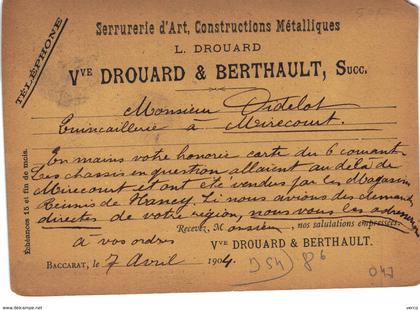 TÉLÉPHONE
Serrurerie d'Art, Constructions Métalliques
L. DROUARD
Vve DROUARD & BERTHAULT, Succ.
Monsieur Ordelot
Quincaillerie à Mirecourt.
En mains votre honorée carte du 6 courant
Les chassis en question allaient au delà de
Mirecourt et ont été vendus par les Magasins
Réunis de Nancy. Si nous avions des demandes
directes de votre région, nous vous les adresserons
Recevez, Monsieur, nos salutations empressées
à vos ordres
Vve DROUARD & BERTHAULT.
BACCARAT, le 7 Avril 1904.
Échéances 15 et fin de mois.
047